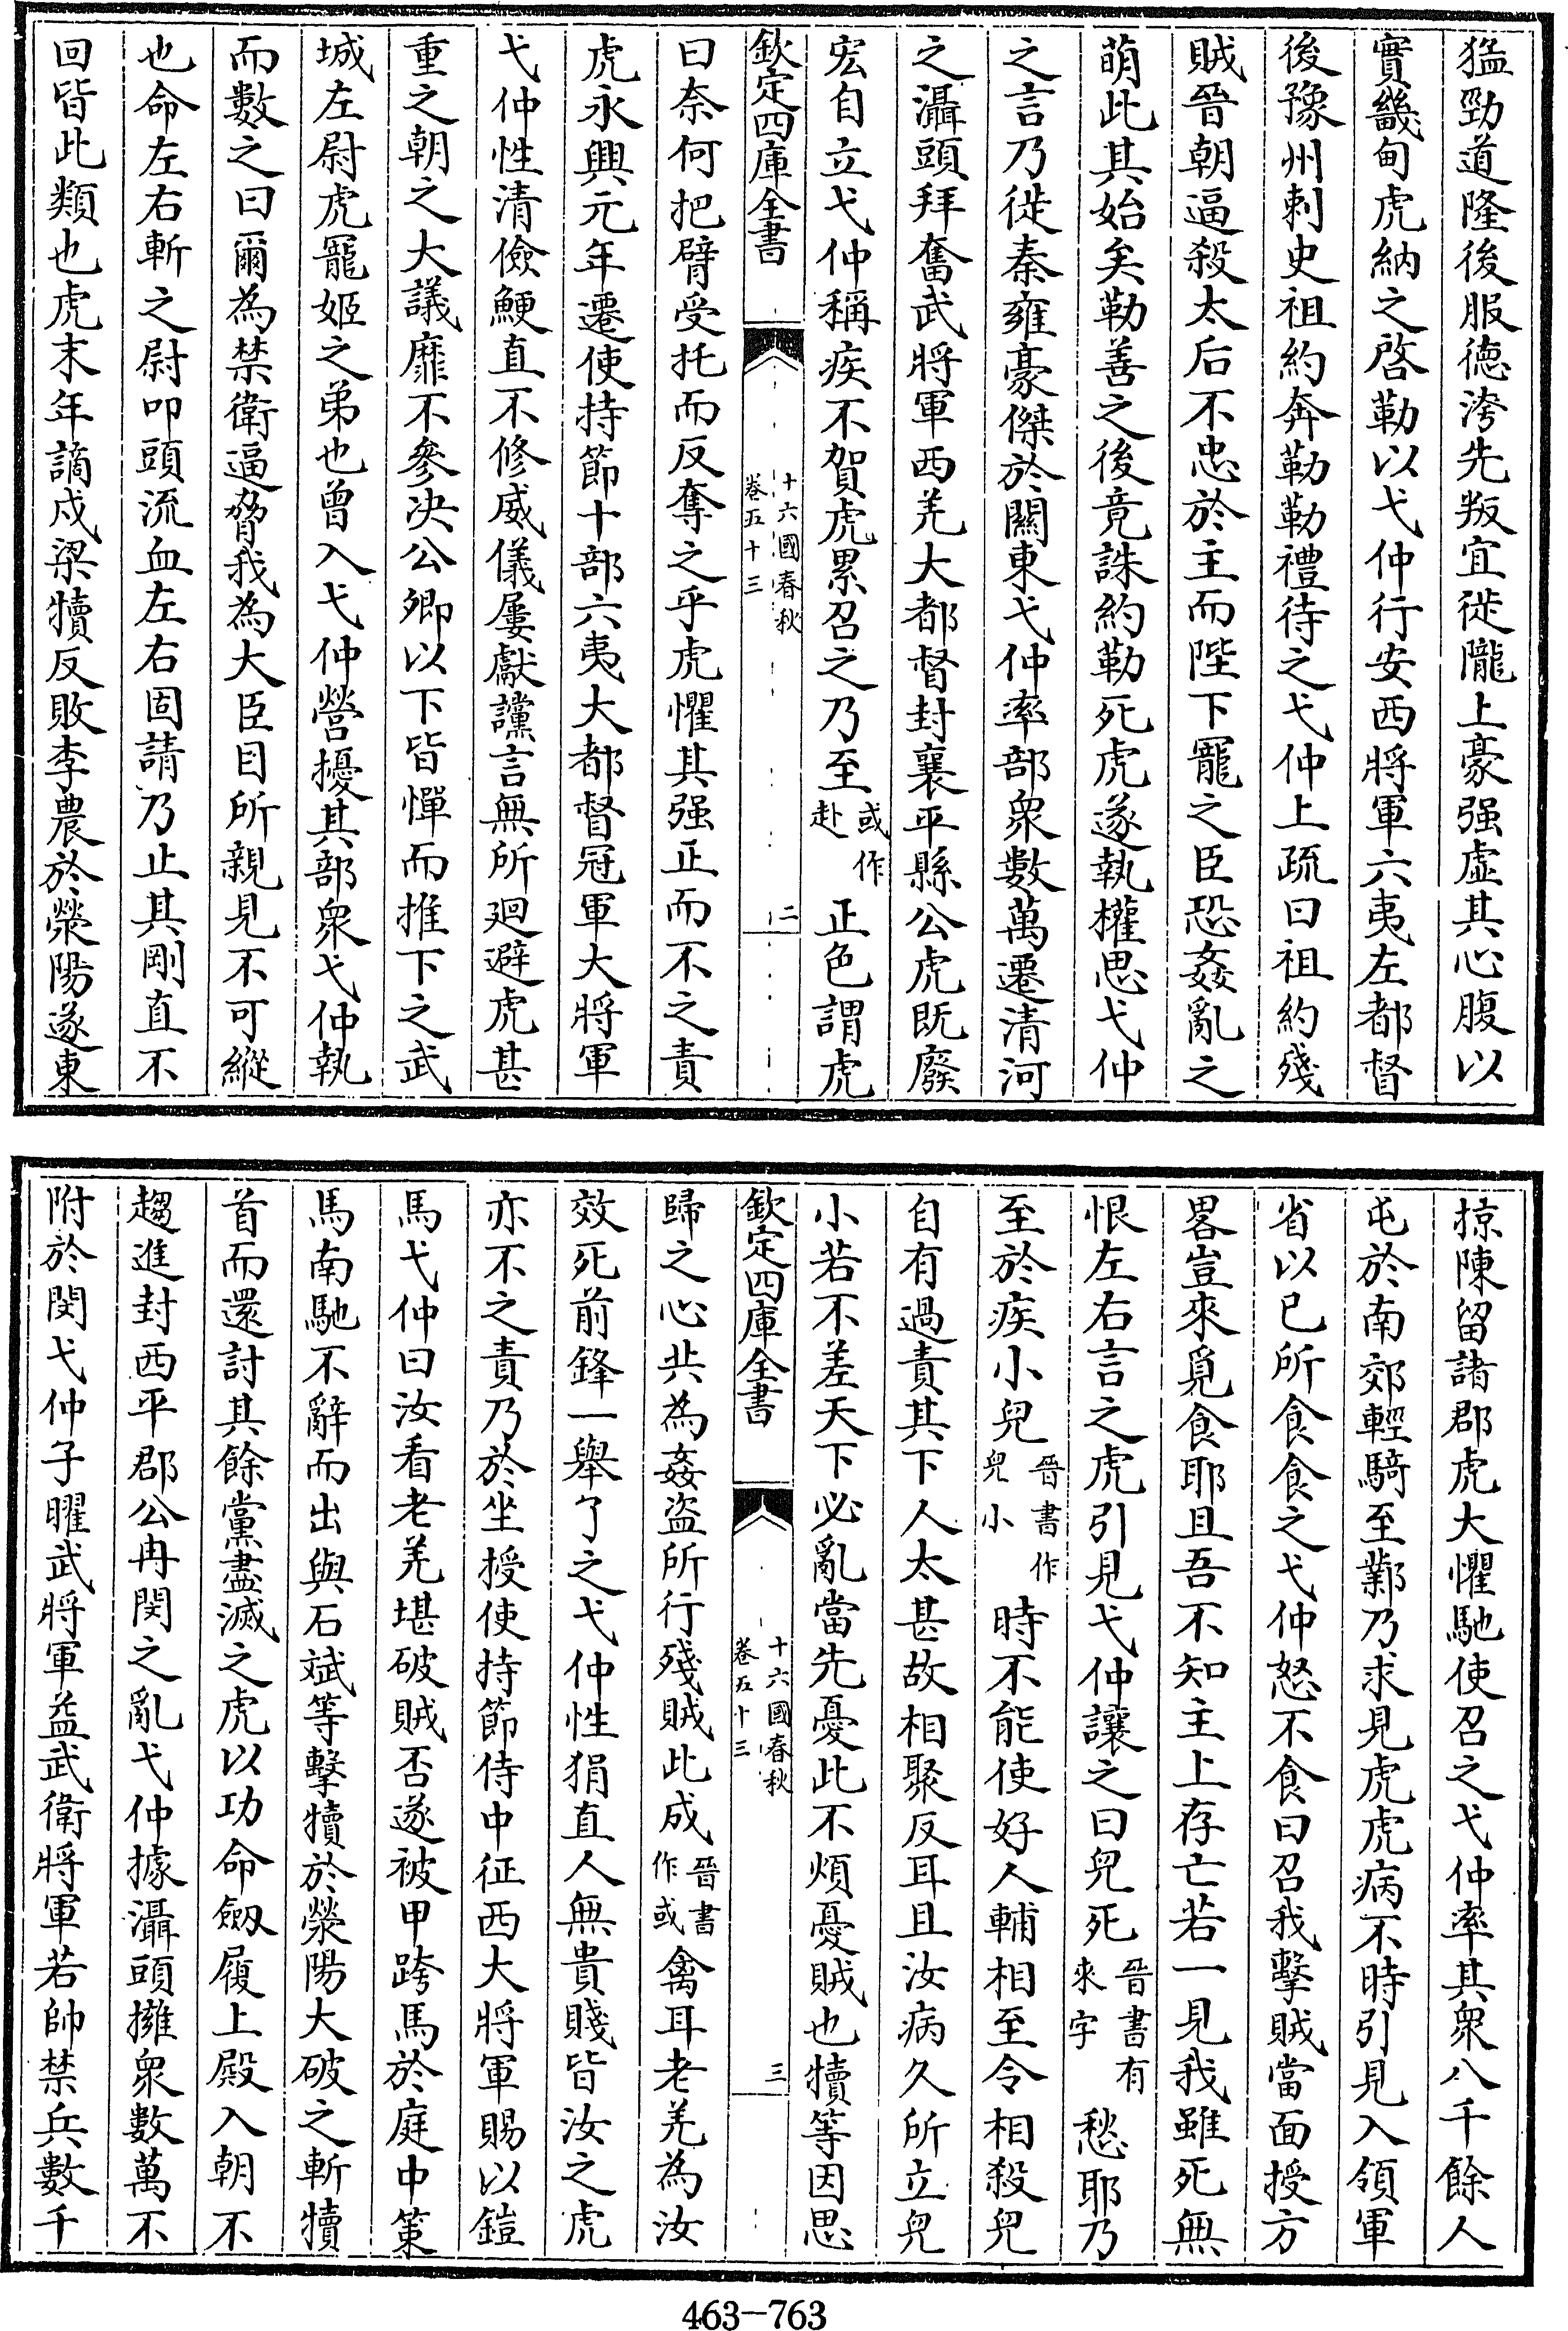 猛勁道隆後服德洿先叛宜徙隴上豪强虛其心腹以
實畿甸虎納之啓勒以弋仲行安西將軍六夷左都督
後豫州刺史祖約奔勒勒禮待之弋仲上疏曰祖約殘
賊晉朝逼殺太后不忠於主而陛下寵之臣恐姦亂之
萌此其始矣勒善之後竟誅約勒死虎遂執權思弋仲
之言乃徙秦雍豪傑於關東弋仲率部衆數萬遷清河
之灄頭拜奮武將軍西羌大都督封襄平縣公虎既廢
宏自立弋仲稱疾不賀虎累召之乃至或作赴正色謂虎
欽定四庫全書 十六國春秋 卷五十三 二
曰奈何把臂受托而反奪之乎虎懼其强正而不之責
虎永興元年遷使持節十部六夷大都督冠軍大將軍
弋仲性清儉鯁直不修威儀屢獻讜言無所迴避虎甚
重之朝之大議靡不參決公卿以下皆憚而推下之武
城左尉虎寵姬之弟也曾入弋仲營擾其部衆弋仲執
而數之曰爾為禁衛逼脅我為大臣目所親見不可縱
也命左右斬之尉叩頭流血左右固請乃止其剛直不
回皆此類也虎末年謫戍梁犢反敗李農於滎陽遂東
掠陳留諸郡虎大懼馳使召之弋仲率其衆八千餘人
屯於南郊輕騎至鄴乃求見虎虎病不時引見入領軍
省以已所食食之弋仲怒不食曰召我擊賊當面授方
畧豈來覓食耶且吾不知主上存亡若一見我雖死無
恨左右言之虎引見弋仲讓之曰兒死晉書有來字愁耶乃
至於疾小兒晉書作兒小時不能使好人輔相至令相殺兒
自有過責其下人太甚故相聚反耳且汝病久所立兒
小若不差天下必亂當先憂此不煩憂賊也犢等因思
欽定四庫全書 十六國春秋 卷五十三 三
歸之心共為姦盗所行殘賊此成晉書作或禽耳老羌為汝
效死前鋒一舉了之弋仲性狷直人無貴賤皆汝之虎
亦不之責乃於坐授使持節侍中征西大將軍賜以鎧
馬弋仲曰汝看老羌堪破賊否遂被甲跨馬於庭中策
馬南馳不辭而出與石斌等擊犢於滎陽大破之斬犢
首而還討其餘黨盡滅之虎以功命劒履上殿入朝不
趨進封西平郡公冉閔之亂弋仲據灄頭擁衆數萬不
附於閔弋仲子曜武將軍益武衛將軍若帥禁兵數千
463-763